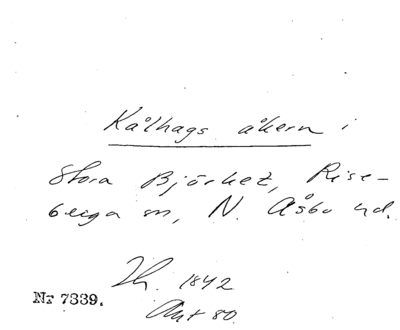 Kålhags åkern i
Stora Björket, Rise-
berga sn, N. Åsbo hd.
Lh. 1842
Akt 80
Nr 7339.